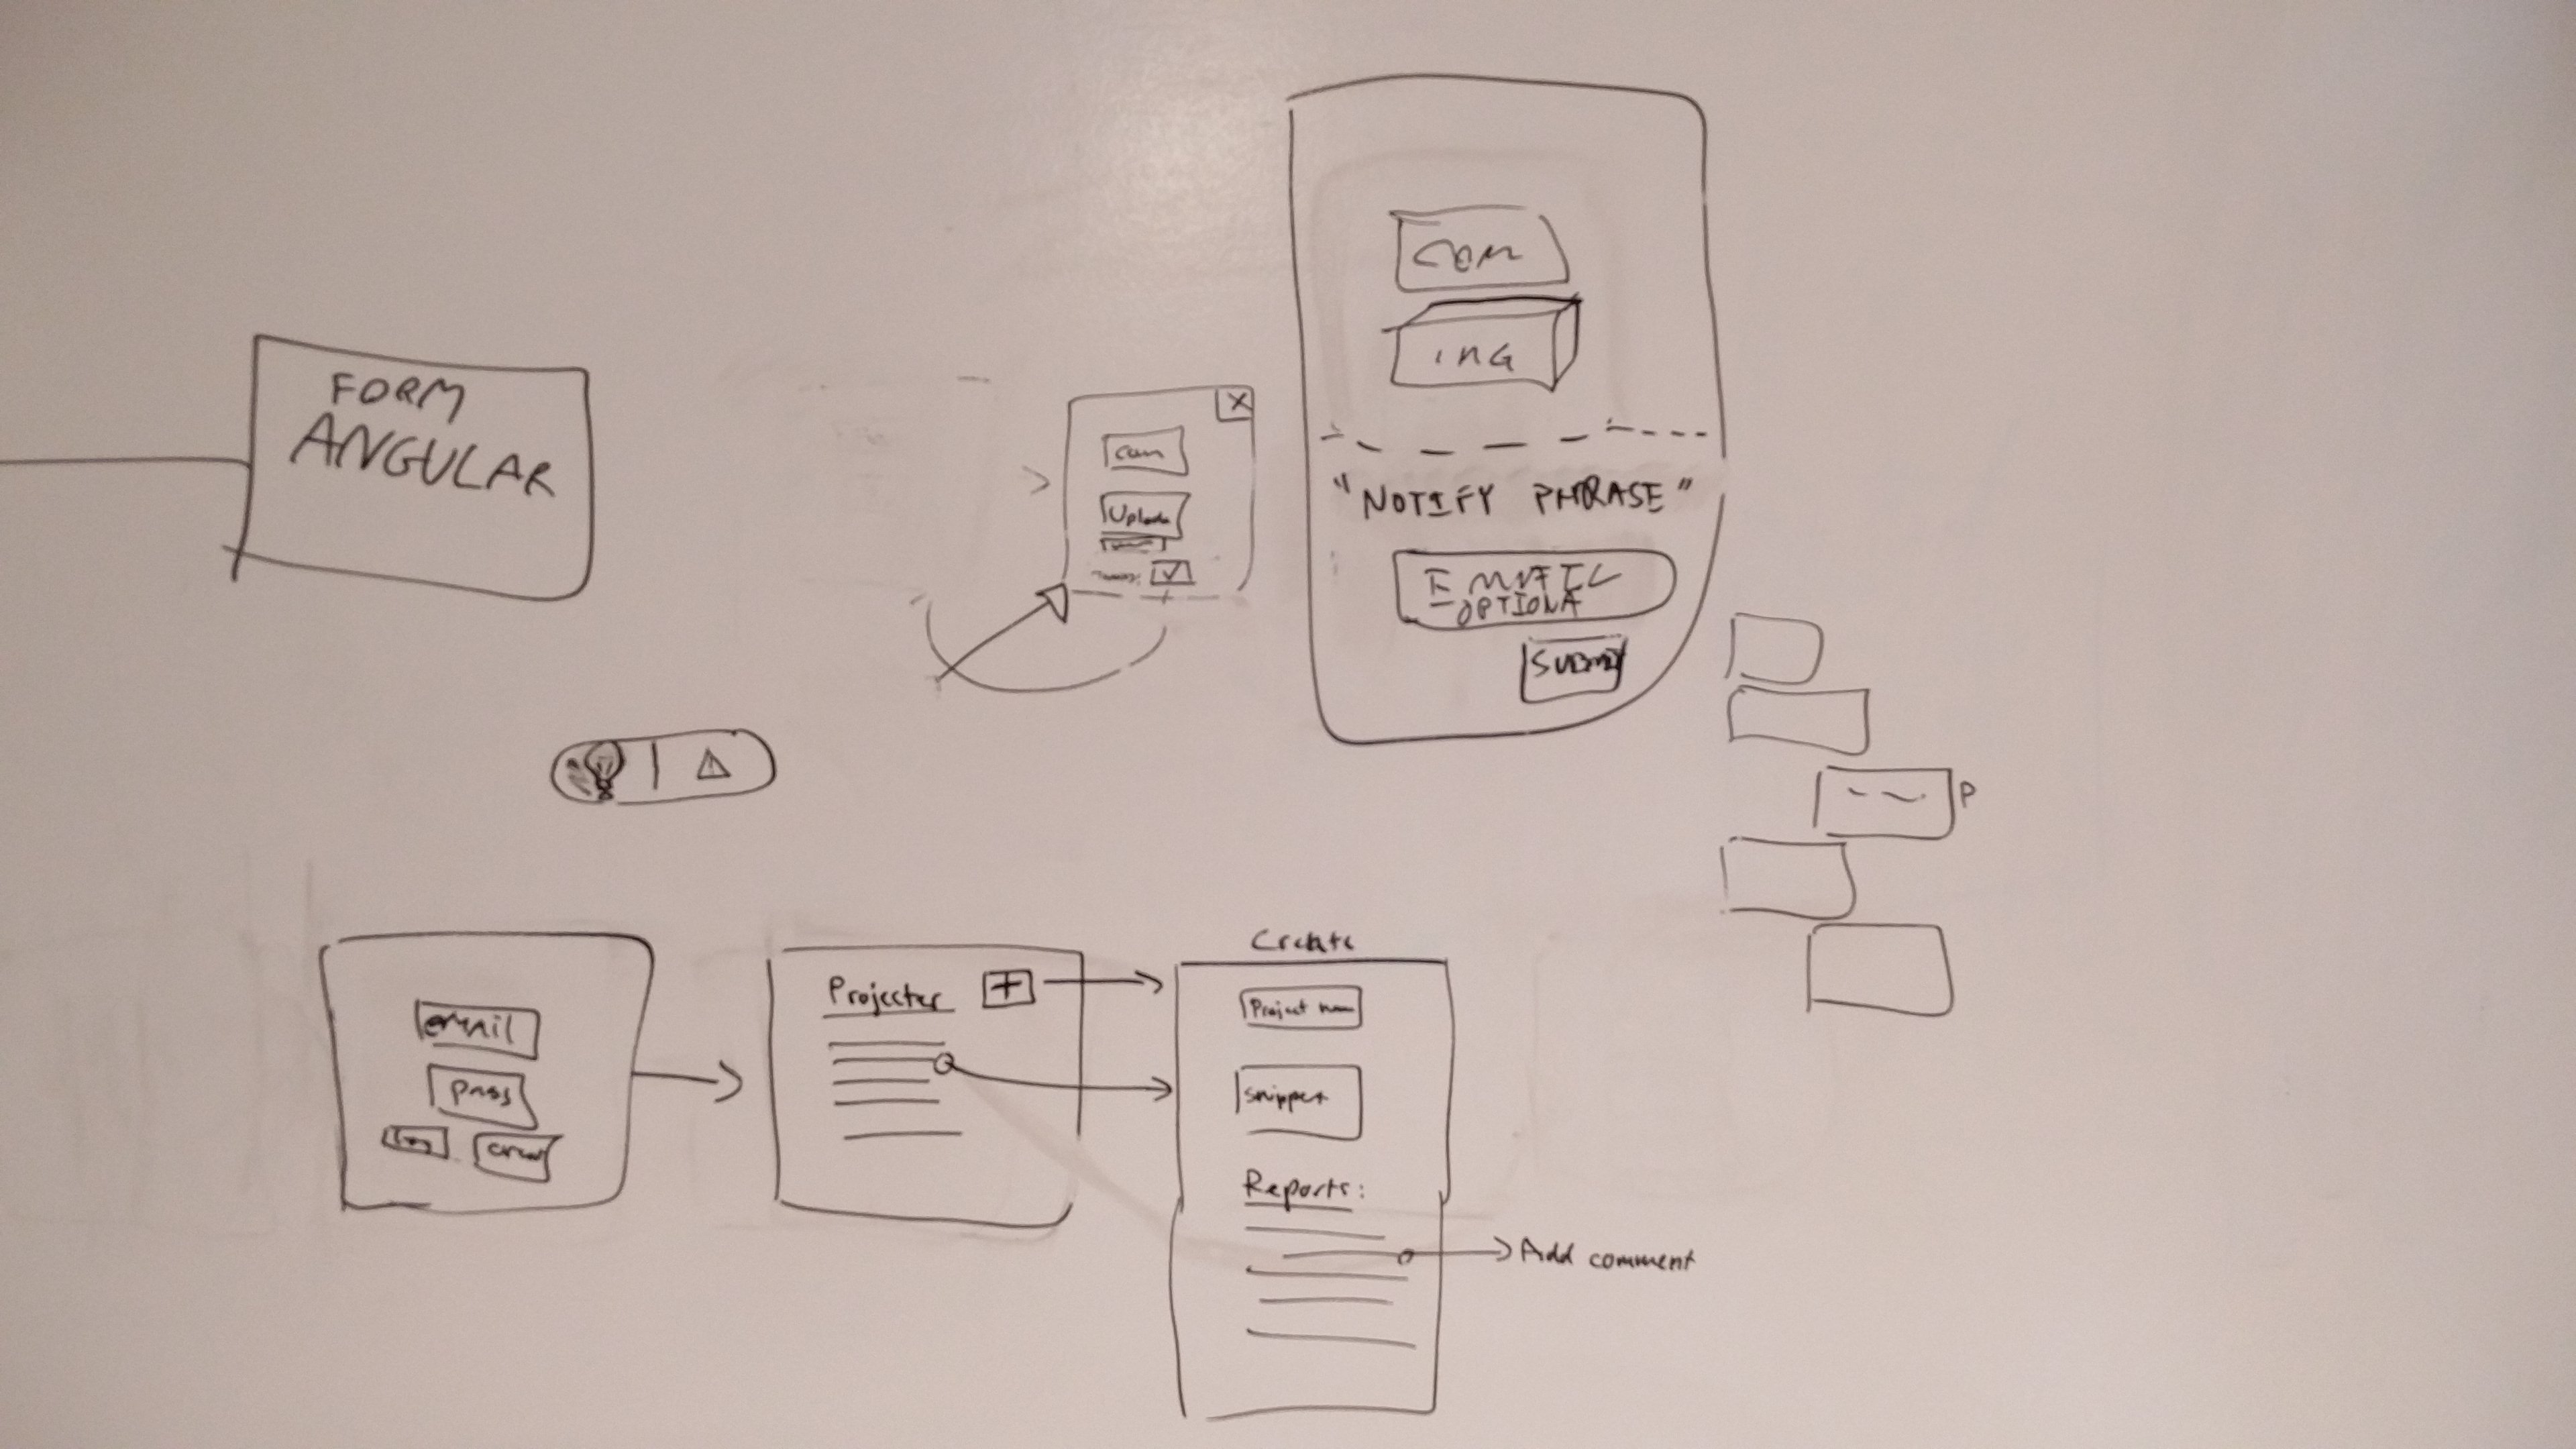 FORM
ANGULAR
X
com
com
ING
"NOTIFY PHRASE"
OPTIONA
SUBMIT
P
email
pass
Projecter
+
Create
Project nam
snippet
Reports:
Add comment